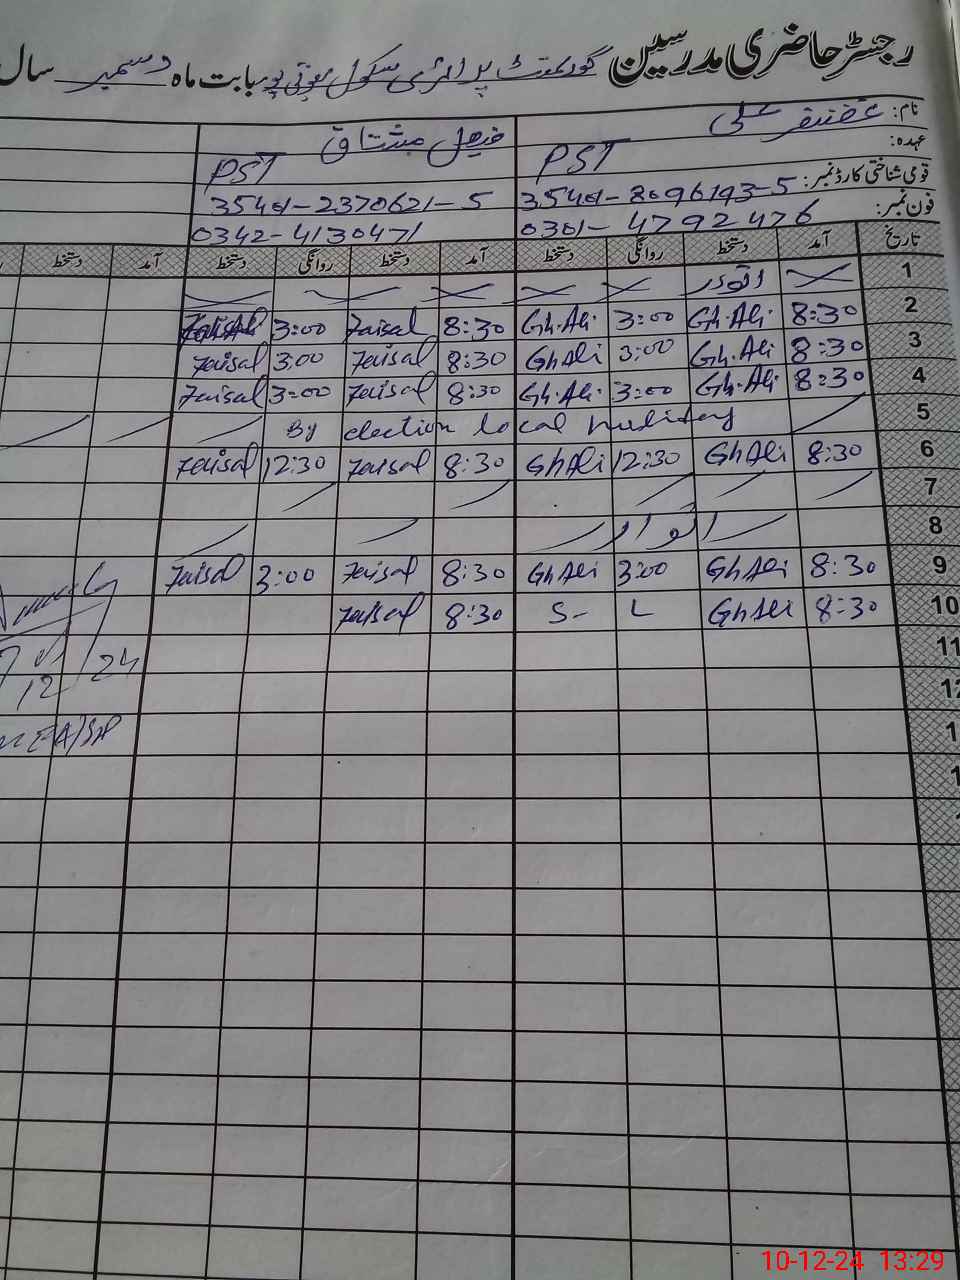 رجسٹر حاضری مدرسین گورنمنٹ پرائمری سکول موتی پور بابت ماہ دسمبر سال
نام: غضنفر علی فیصل مشتاق
عہدہ: PST PST
قومی شناختی کارڈ نمبر: 35401-8096193-5 35401-2370621-5
فون نمبر: 0301-4792476 0342-4130471
تاریخ آمد دستخط روانگی دستخط آمد دستخط روانگی دستخط آمد دستخط
1 اتوار
2 8:30 Gh.Ali 3:00 Gh.Ali 8:30 Faisal 3:00 Faisal
3 8:30 Gh.Ali 3:00 GhAli 8:30 Faisal 3:00 Faisal
4 8:30 Gh.Ali 3:00 Gh.Ali 8:30 Faisal 3:00 Faisal
5 By election local
6 8:30 GhAli 12:30 GhAli 8:30 Faisal 12:30 Faisal
7
8 اتوار
9 8:30 GhAli 3:00 GhAli 8:30 Faisal 3:00 Faisal
10 8:30 GhAli L S- 8:30 Faisal
11
12 24
10-12-24 13:29